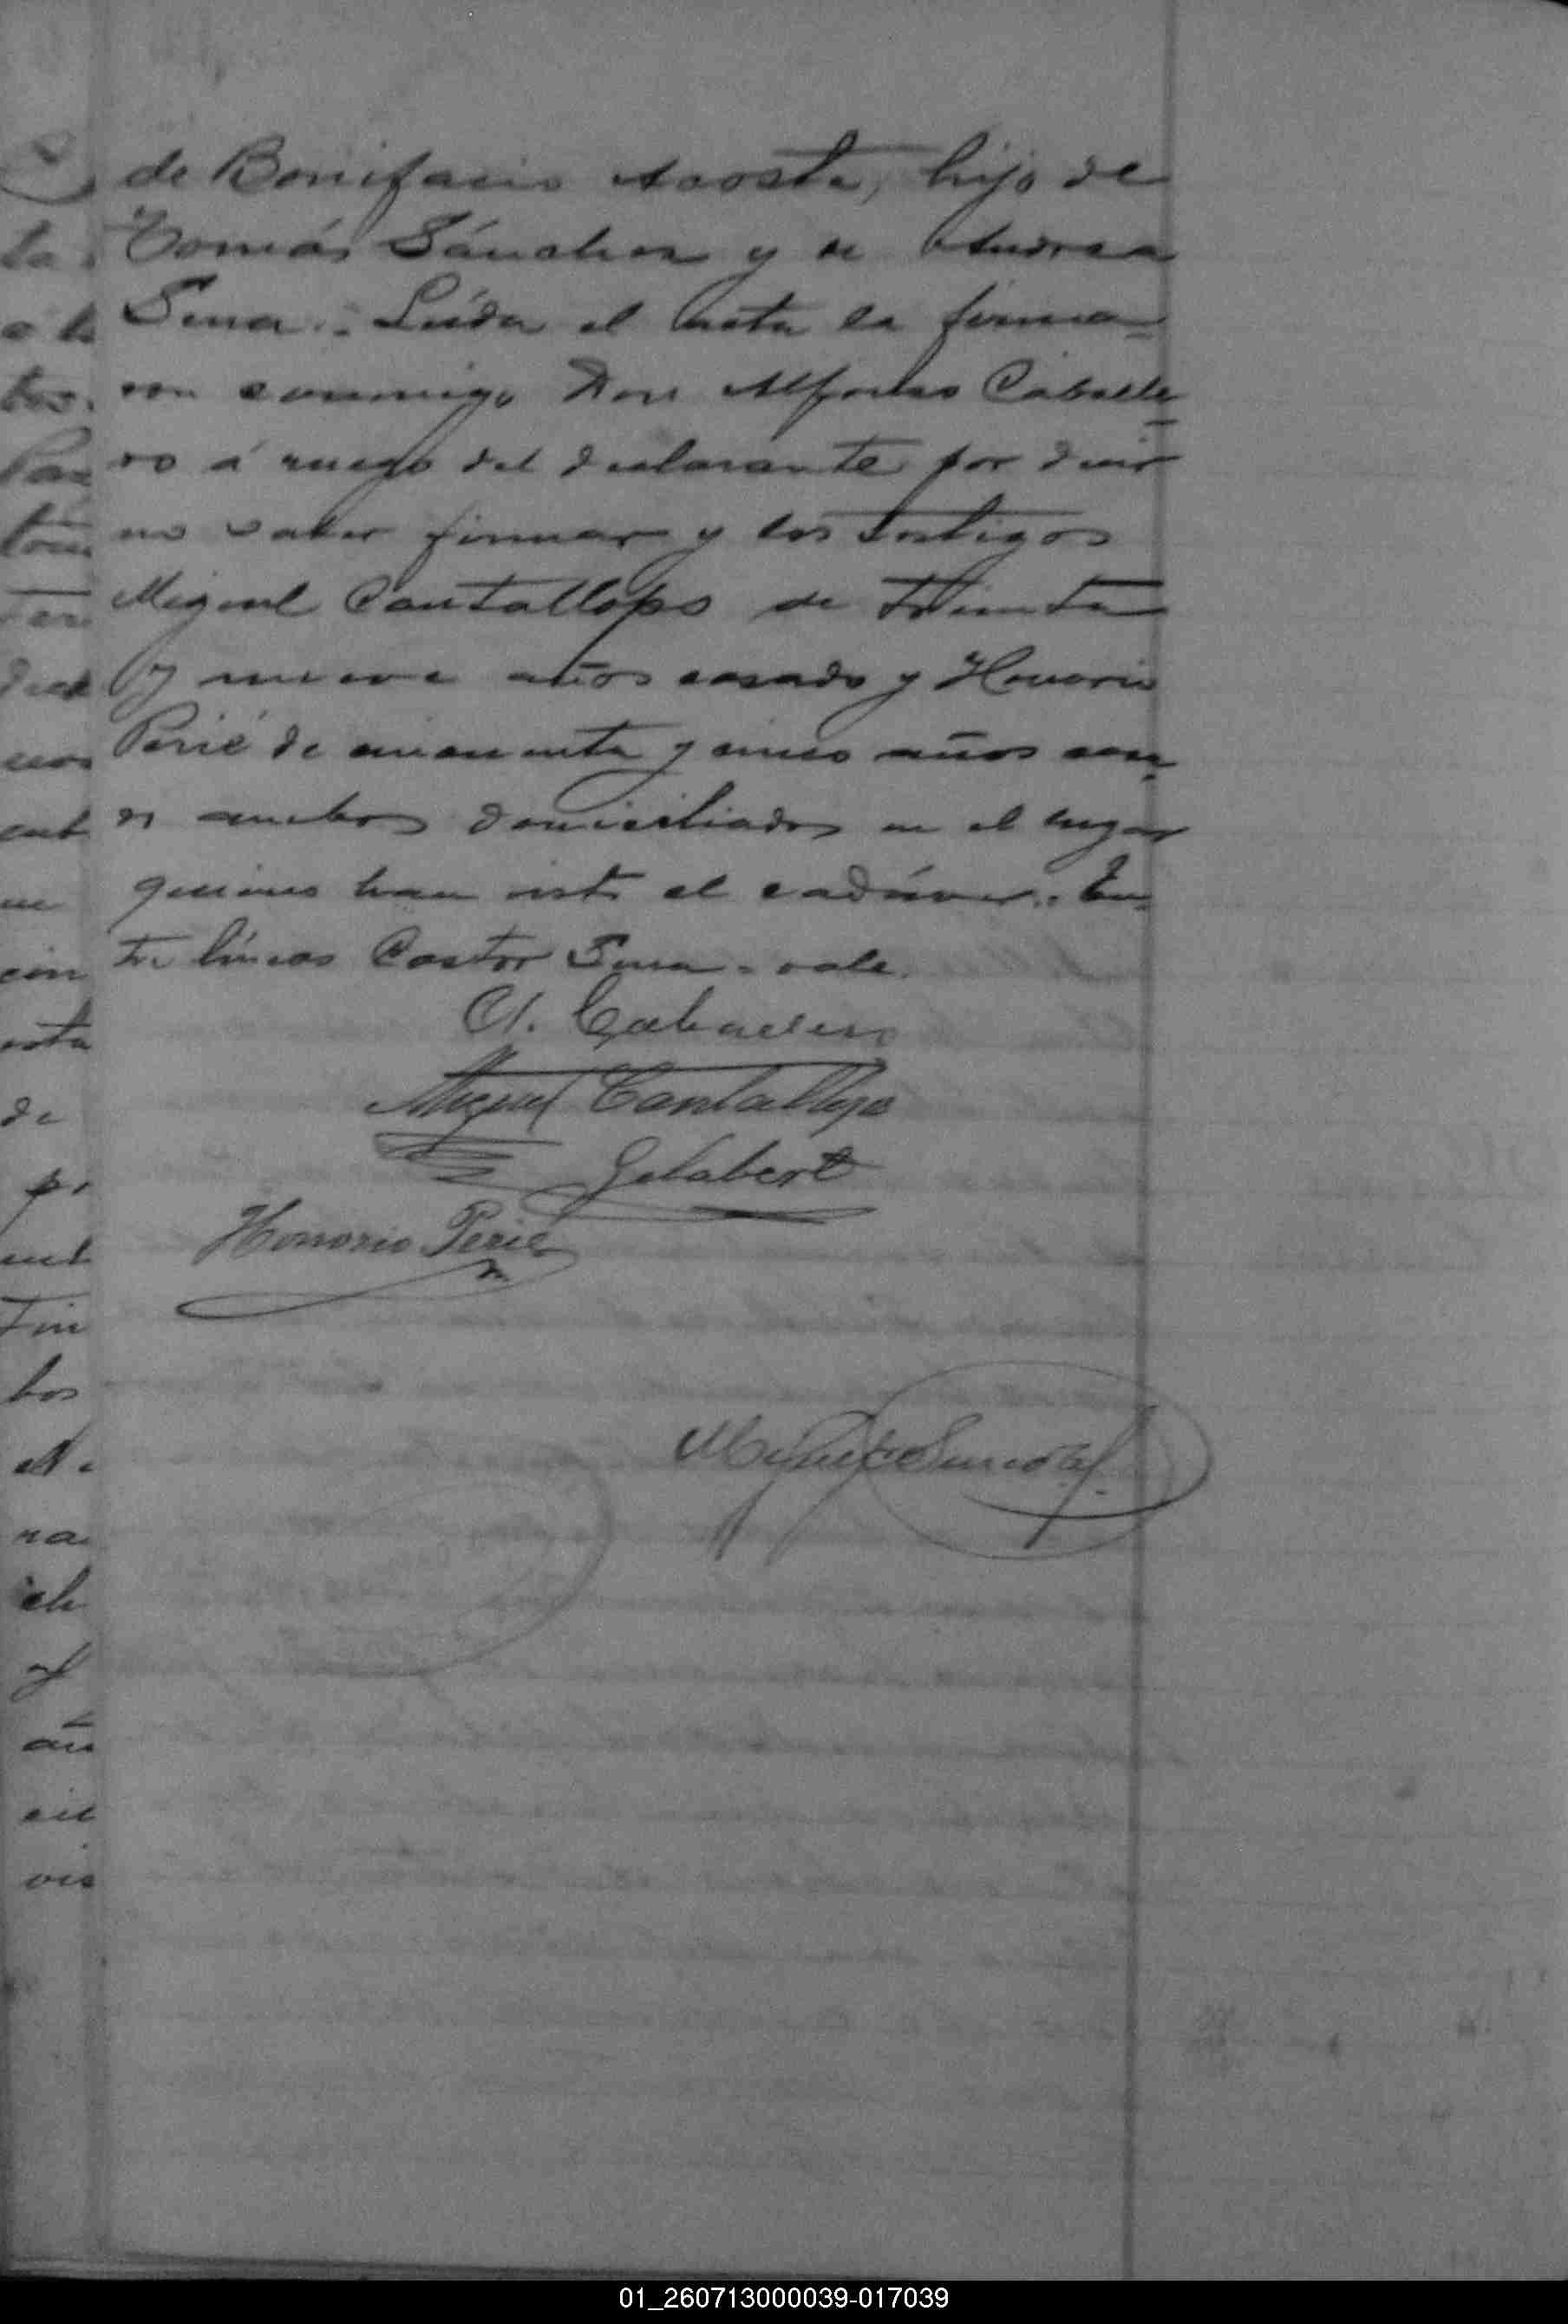 de Bonifacio Acosta, hijo de
Tomás Sánchez y de Andrea
Sena.. Leída el acta la firma=
ron conmigo Don Alfonso Caballe=
ro á ruego del declarante por decir
no saber firmar y los testigos
Miguel Cantallops de treinta
y nueve años casado y Honorio
Perié de cincuenta y cinco años casa=
do ambos domiciliados en el lugar
quienes han visto el cadáver.. En=
tre líneas Castor Sena = vale.
A. Caballero
Miguel Cantallops
Gelabert
Honorio Perié
01_260713000039-017039